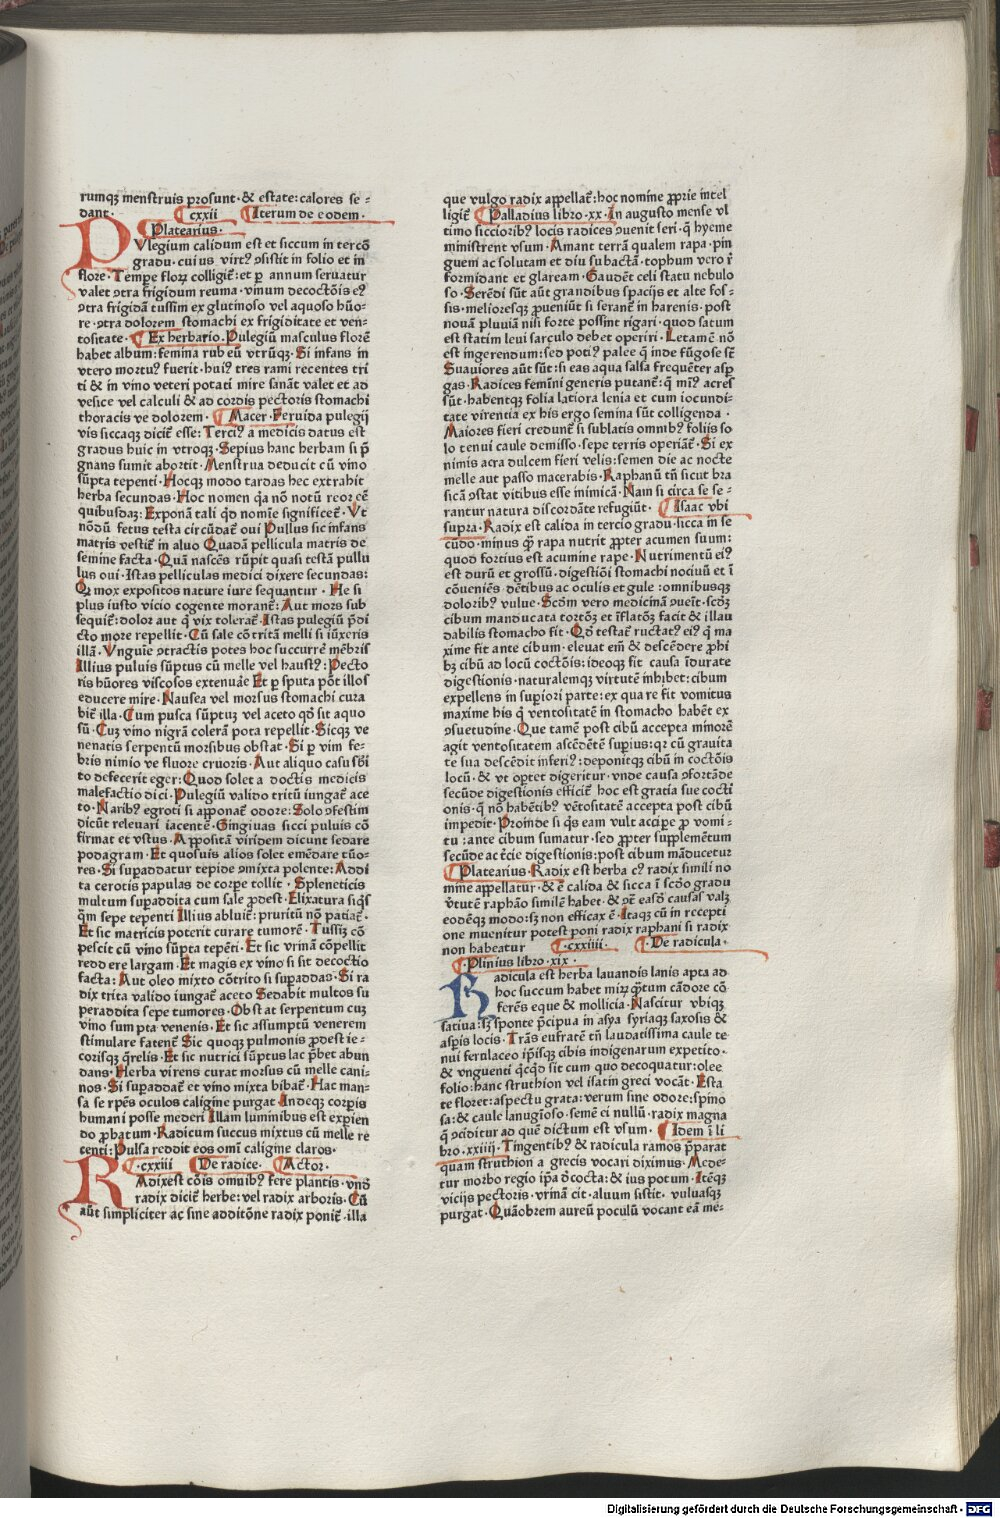 rumqꝫ menstruis prosunt · & estate: calores se⸗
dant · cxxii Iterum de eodem ·
Platearius ·
PUlegium calidum est et siccum in tercō
gradu · cui us virtꝰ ꝯsistit in folio et in
flore · Temꝑe florꝝ colligit᷑: et ꝑ annum seruatur
valet ꝯtra frigidum reuma · vinum decoctōis eiꝰ
ꝯtra frigidā tussim ex glutinoso vel aquoso hūo⸗
re · ꝯtra dolorem stomachi ex frigiditate et ven⸗
tositate · Ex herbario · Pulegiū masculus florē
habet album: femina rub eū vtrūqꝫ · Si infans in
vtero mortuꝰ fuerit · huiꝰ tres rami recentes tri
ti & in vino veteri potati mire sanāt valet et ad
vesice vel calculi & ad cordis pectoris stomachi
thoracis ve dolorem · Macer · Feruida pulegij
vis siccaqꝫ dicit᷑ esse: Terciꝰ a medicis datus est
gradus huic in vtroqꝫ · Sepius hanc herbam si p̄
gnans sumit abortit · Menstrua deducit cū vino
sūpta tepenti · Hocqꝫ modo tardas hec extrahit
herba secundas · Hoc nomen q̄a nō notū reor eē
quibusdaꝫ: Exponā tali qd̄ nomīe significet᷑ · Vt
nōdū fetus testa circūdat᷑ oui Pullus sic infans
matris vestit᷑ in aluo Quadā pellicula matris de
semine facta · Quā nascēs rūpit quasi testā pullu
lus oui · Istas pelliculas medici dixere secundas:
Q mox expositos nature iure sequantur · He si
plus iusto vicio cogente morant᷑: Aut mors sub
sequit᷑: dolor aut q̄ vix tolerat᷑ · Istas pulegiū p̄di
cto more repellit · Cū sale cōtritā melli si iūxeris
illā · Vnguīe ꝯtractis potes hoc succurrē mēbris
Illius puluis sūptus cū melle vel haustꝰ: Pecto
ris hūores viscosos extenuāe Et ꝑ sputa pōt illos
educere mire · Nausea vel morsus stomachi cura
bit᷑ illa · Cum pusca sūptuꝫ vel aceto qd̄ sit aquo
sū · Cuꝫ vino nigrā colerā pota repellit · Sicqꝫ ve
nenatis serpentū morsibus obstat · Si ꝑ vim fe⸗
bris nimio ve fluore cruoris · Aut aliquo casu sb̄i
to defecerit eger: Quod solet a doctis medicis
malefactio dici · Pulegiū valido tritū iungat᷑ ace
to · Naribꝰ egroti si apponat᷑ odore: Solo ꝯfestim
dicūt releuari iacentē · Gingiuas sicci puluis cō
firmat et vstus · Appositā viridem dicunt sedare
podagram · Et quosuis alios solet emēdare tūo⸗
res · Si supaddatur tepide ꝯmixta polente: Addi
ta cerotis papulas de corꝑe tollit · Spleneticis
multum supaddita cum sale ꝓdest · Elixatura siq̄s
q̄m sepe tepenti Illius abluit᷑: pruritū nō patiat᷑ ·
Et sic matricis poterit curare tumorē · Tussiꝫ cō
pescit cū vino sūpta tepēti · Et sic vrinā cōpellit
redd ere largam · Et magis ex vino si sit decoctio
facta: Aut oleo mixto cōtrito si supaddas · Si ra
dix trita valido iungat᷑ aceto Sedabit multos su
peraddita sepe tumores · Obst at serpentum cuꝫ
vino sum pta venenis · Et sic assumptū venerem
stimulare fatent᷑ Sic quoqꝫ pulmonis ꝓdest ie⸗
corisqꝫ q̄relis · Et sic nutrici sūptus lac p̄bet abun
dans · Herba virens curat morsus cū melle cani⸗
nos · Si supaddat᷑ et vino mixta bibat᷑ · Hac man⸗
sa se rpēs oculos caligine purgat Indeqꝫ corꝑis
humani posse mederi Illam luminibus est expien
do ꝓbatum · Radicum succus mixtus cū melle re
centi: Pulsa reddit eos omī caligine claros ·
· cxxiii De radice · Actor ·
RAdixest cōis omnibꝰ fere plantis · vnd̄
radix dicit᷑ herbe: vel radix arboris · Cū
aūt simpliciter ac sine additōne radix ponit᷑ · illa
que vulgo radix appellat᷑: hoc nomine ꝓprie intel
ligit᷑ Palladius libro · xx · In augusto mense vl
timo siccioribꝰ locis radices ꝯuenit seri · q̄ hyeme
ministrent vsum · Amant terrā qualem rapa · pin
guem ac solutam et diu subactā · tophum vero r̄
formidant et glaream · Gaudēt celi statu nebulo
so · Serēdi sūt aūt grandibus spacijs et alte fos⸗
sis · melioresqꝫ ꝓueniūt si serant᷑ in harenis · post
nouā pluuiā nisi forte possint rigari · quod satum
est statim leui sarculo debet operiri · Letamē nō
est ingerendum: sed potiꝰ palee q̄ inde fūgose st᷑
Suauiores aūt sūt: si eas aqua salsa frequēter asꝑ
gas · Radices femini generis putant᷑: q̄ miꝰ acres
sūt · habentqꝫ folia latiora lenia et cum iocundi⸗
tate virentia ex his ergo semina sūt colligenda ·
Maiores fieri credunt᷑ si sublatis omnibꝰ folijs so
lo tenui caule demisso · sepe terris operiāt᷑ · Si ex
nimis acra dulcem fieri velis: semen die ac nocte
melle aut passo macerabis · Raphanū tn̄ sicut bra
sicā ꝯstat vitibus esse inimicā · Nam si circa se se⸗
rantur natura discordāte refugiūt · Isaac vbi
supra · Radix est calida in tercio gradu · sicca in se
cūdo · minus qꝫ rapa nutrit ꝓpter acumen suum:
quod fortius est acumine rape · Nutrimentū eiꝰ
est durū et grossū · digestiōi stomachi nociuū et ī
cōueniēs · dētibus ac oculis et gule: omnibusqꝫ
doloribꝰ vulue · Scdm̄ vero medicinā ꝯuēit · scdꝫ
cibum manducata tortōꝫ et īflatōꝫ facit & illau
dabilis stomacho fit · Qd̄ testat᷑ ructatꝰ eiꝰ q̄ ma
xime fit ante cibum · eleuat em̄ & descēdere ꝓhi
bꝫ cibū ad locū coctōis: ideoqꝫ fit causa īdurate
digestionis · naturalemqꝫ virtutē inhibet: cibum
expellens in suꝑiori parte: ex qua re fit vomitus
maxime his q̄ ventositatē in stomacho habēt ex
ꝯsuetudine · Que tamē post cibū accepta minorē
agit ventositatem ascēdētē suꝑius: qꝛ cū grauita
te sua descēdit inferiꝰ: deponitqꝫ cibū in coctōis
locū · & vt oꝑtet digeritur · vnde causa ꝯfortāde
secūde digestionis efficit᷑ hoc est gratia sue cocti
onis · q̄ nō habētibꝰ vētositatē accepta post cibū
impedit · Proinde si q̄s eam vult acciꝑe ꝓ vomi⸗
tu: ante cibum sumatur · sed ꝓpter supplemētum
secūde ac t᷑cie digestionis: post cibum māducetur
Platearius · Radix est herba cꝰ radix simili no
mine appellatur · & ē calida & sicca ī scdō gradu
v̄tutē raphāo similē habet · & ꝯt᷑ easd̄ causas valꝫ
eodēqꝫ modo: sꝫ non efficax ē · Itaqꝫ cū in recepti
one inuenitur potest poni radix raphani si radix
non habeatur · cxxiiii · De radicula ·
· Plinius libro · xix ·
RAdicula est herba lauandis lanis apta ad
hoc succum habet mirꝫ q̄tum cādore cō
ferēs eque & mollicia · Nascitur vbiqꝫ
satiua: sꝫ sponte p̄cipua in asya syriaqꝫ saxosis &
asꝑis locis · Trās eufratē tn̄ laudatissima caule te
nui ferulaceo ip̄isqꝫ cibis indigenarum expetito ·
& vnguenti q̄cqd̄ sit cum quo decoquatur: olee
folio: hanc struthion vel isatin greci vocāt · Esta
te floret: aspectu grata: verum sine odore: spino
sa: & caule lanugīoso · semē ei nullū · radix magna
q̄ ꝯciditur ad quē dictum est vsum · Idem ī li
bro · xxiiii · Tingentibꝰ & radicula ramos p̄parat
quam struthion a grecis vocari diximus · Mede⸗
tur morbo regio ip̄a d̄cocta: & ius potum · Itēqꝫ
vicijs pectoris · vrinā cit · aluum sistit · vuluasqꝫ
purgat · Quāobrem aureū poculū vocant eā me⸗
Digitalisierung gefördert durch die Deutsche Forschungsgemeinschaft · DFG